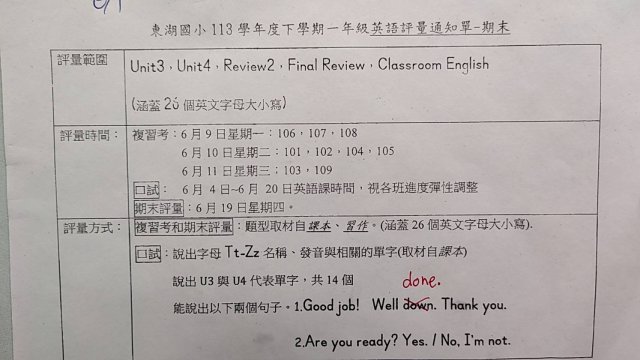 東湖國小 113 學年度下學期一年級英語評量通知單-期末
評量範圍
Unit3，Unit4，Review2，Final Review，Classroom English
(涵蓋 26 個英文字母大小寫)
評量時間：
複習考：6 月 9 日星期一：106，107，108
6 月 10 日星期二：101，102，104，105
6 月 11 日星期三：103，109
口試： 6 月 4 日~6 月 20 日英語課時間，視各班進度彈性調整
期末評量：6 月 19 日星期四。
評量方式：
複習考和期末評量：題型取材自課本、習作。(涵蓋 26 個英文字母大小寫).
口試：說出字母 Tt-Zz 名稱、發音與相關的單字(取材自課本)
說出 U3 與 U4 代表單字，共 14 個
done.
能說出以下兩個句子。1.Good job! Well down. Thank you.
2.Are you ready? Yes. / No, I'm not.